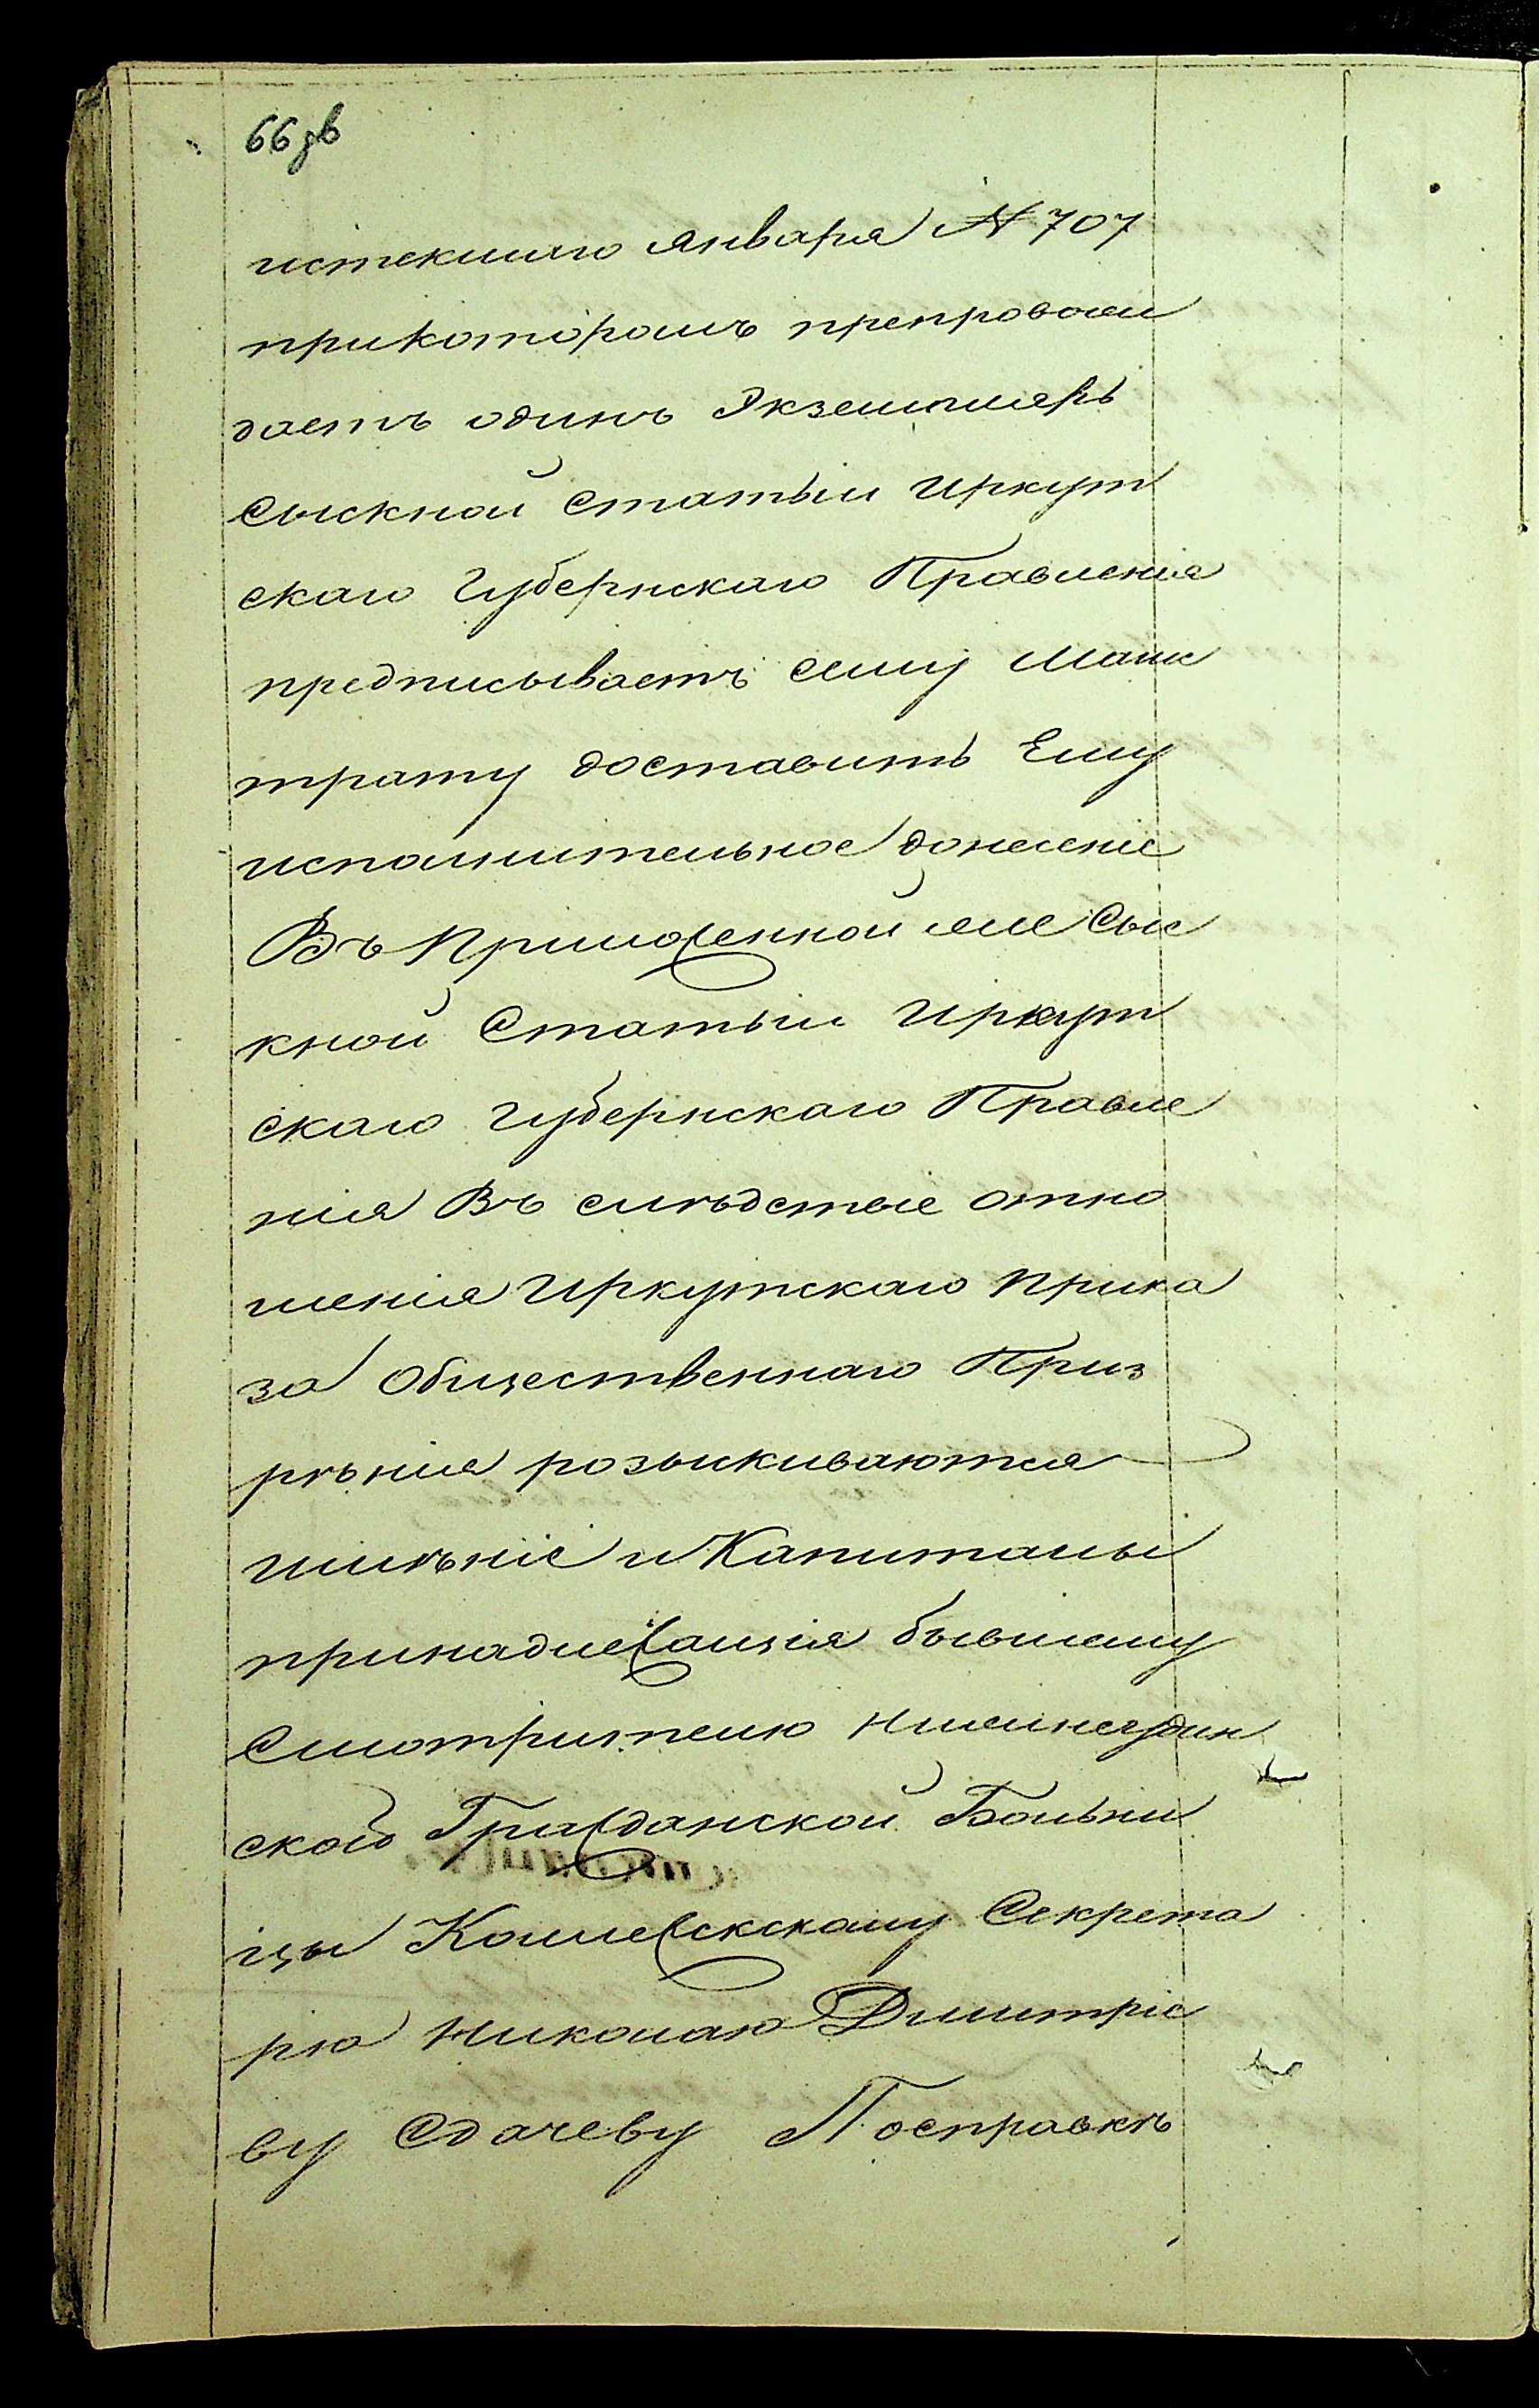 66 об
истекшаго Января № 707
прикоторомъ препровож
даетъ одинъ Экземпляръ
сыскной Статьи Иркут
скаго Губернскаго Правленія
предписываетъ сему Магис
трату доставить Ему
исполнительное донесеніе
Въ Приложенной же Сыс
кной Статьи Иркут
скаго Губернскаго Правле
нія Въ слѣдствіе отно
шенія Иркутскаго Прика
за Общественнаго Приз
рѣнія розыскиваются
имѣніе и Капиталы
принадлежащія бывшему
Смотрителю Нижнеудин
ской Гражданской Больни
цы Коллежскому Секрета
рю Николаю Димитріе
ву Сдачеву Посправкѣ